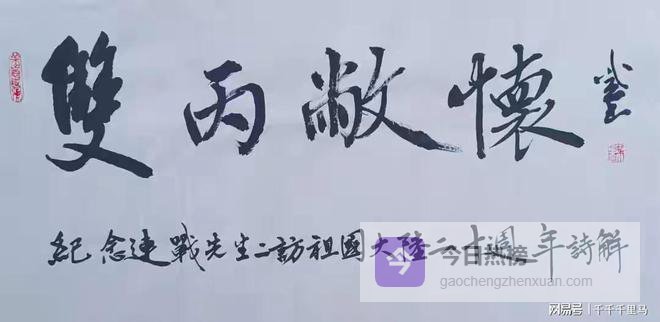 雙丙敝懷
紀念連戰先生二訪祖國大陸二十週年詩解
今日热榜
gaochengzhenxuan.com
网易号 | 千千千里马